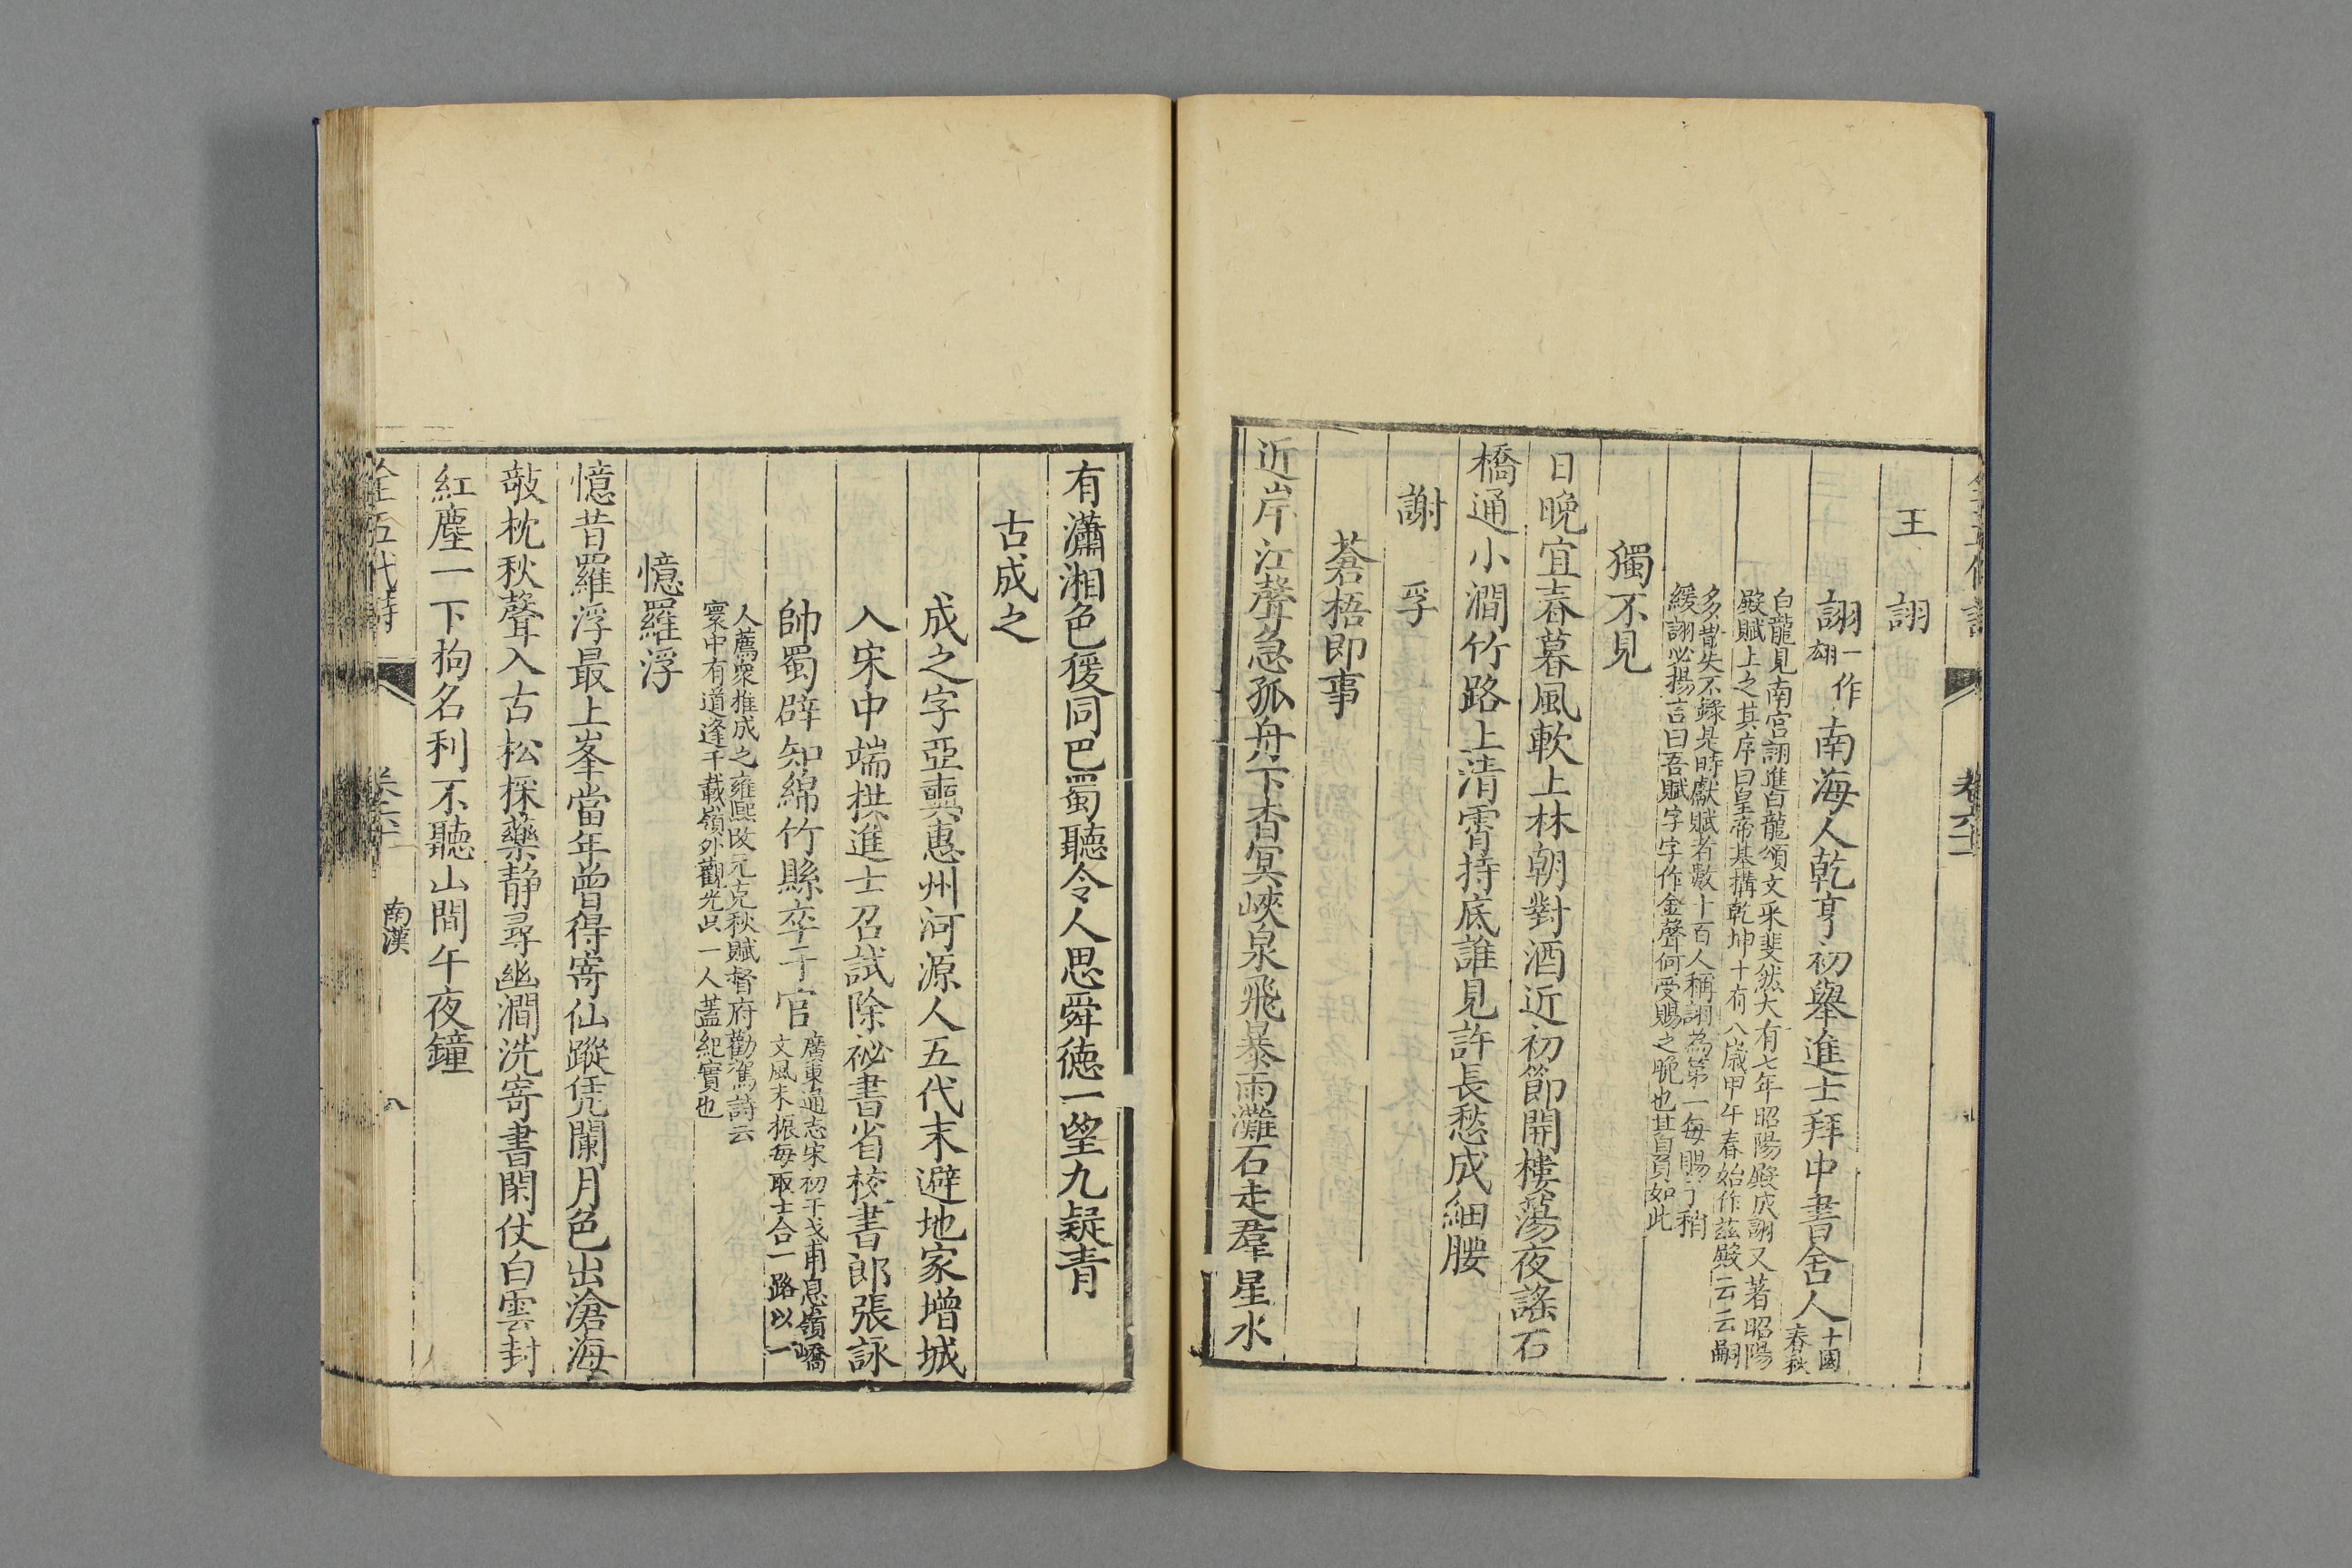 王　詡
詡一作翃南海人乾亨初舉進士拜中書舍人十國春秋
白龍見南宮詡進白龍頌文采斐然大有七年昭陽殿成詡又著昭陽
殿賦上之其序曰皇帝基搆乾坤十有八歲甲午春始作茲殿云云嗣
多散失不錄是時獻賦者數十百人稱詡為第一每賜予稍
緩詡必揚言曰吾賦字字作金聲何受賜之晚也其自負如此
獨不見
日晚宜春暮風軟上林朝對酒近初節開樓蕩夜謠石
橋通小澗竹路上清霄持底誰見許長愁成細腰
謝　孚
蒼梧即事
近岸江聲急孤舟下杳冥峽泉飛暴雨灘石走羣星水
有瀟湘色猨同巴蜀聽令人思舜德一望九疑青
古成之
成之字亞奭惠州河源人五代末避地家增城
入宋中端拱進士召試除祕書省校書郎張詠
帥蜀辟知綿竹縣卒于官廣東通志宋初干戈甫息嶺嶠
文風未振每取士合一路以一
人薦衆推成之雍熙改元克秋賦督府勸駕詩云
寰中有道逢千載嶺外觀光只一人蓋紀實也
憶羅浮
憶昔羅浮最上峯當年曾得寄仙蹤凭闌月色出滄海
敧枕秋聲入古松採藥靜尋幽澗洗寄書閑仗白雲封
紅塵一下拘名利不聽山間午夜鐘
全五代詩
南漢
八